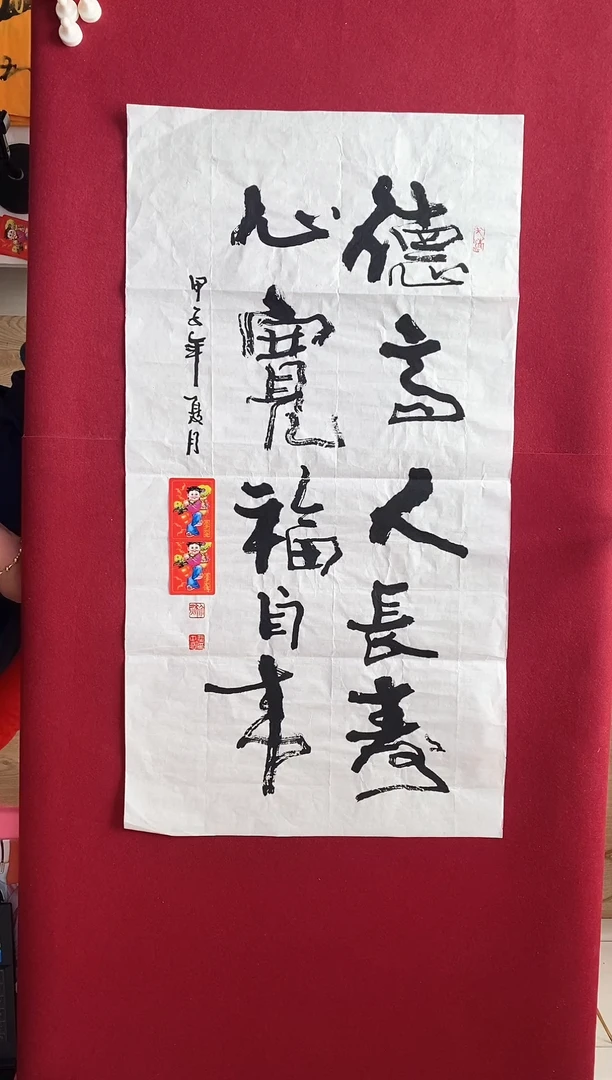 德高人長壽
心寬福自來
甲子年夏月